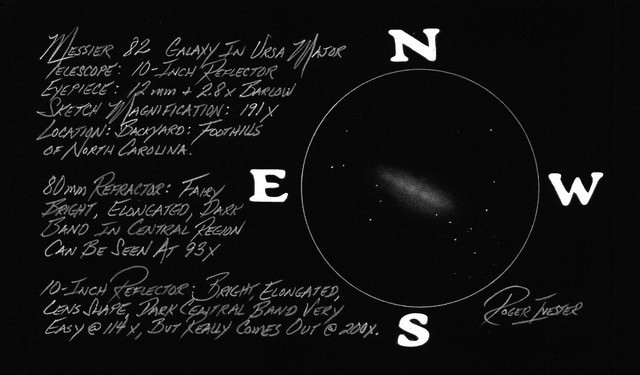 Messier 82 Galaxy In Ursa Major
Telescope: 10-Inch Reflector
Eyepiece: 12mm + 2.8x Barlow
Sketch Magnification: 191x
Location: Backyard: Foothills
of North Carolina.
80mm Refractor: Fairy
Bright, Elongated, Dark
Band In Central Region
Can Be Seen At 93x
10-Inch Reflector: Bright, Elongated,
Lens Shape, Dark Central Band Very
Easy @ 114x, But Really Comes Out @ 200x.
N
E
W
S
Roger Ivester